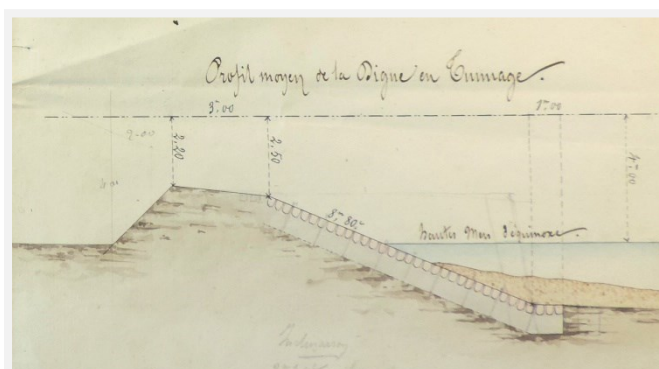 Profil moyen de la Digue en Tunnage.
3.m00
1.m00
2.00
2.20
2.50
4.m00
8.m80c
hautes Mers d'équinoxe.